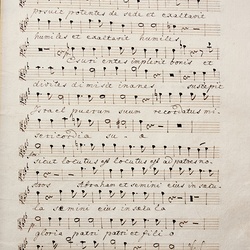 posuit potentes de sede et exaltavit
humiles et exaltavit humiles
Esurientes implevit bonis et
divites dimisit inanes suscepit
Israel puerum suum recordatus mi
sericordia su a
sicut locutus est locutus est ad patres no
stros Abraham et semini eius in sæcu
la semini eius in sæcula
gloria patri patri et filio